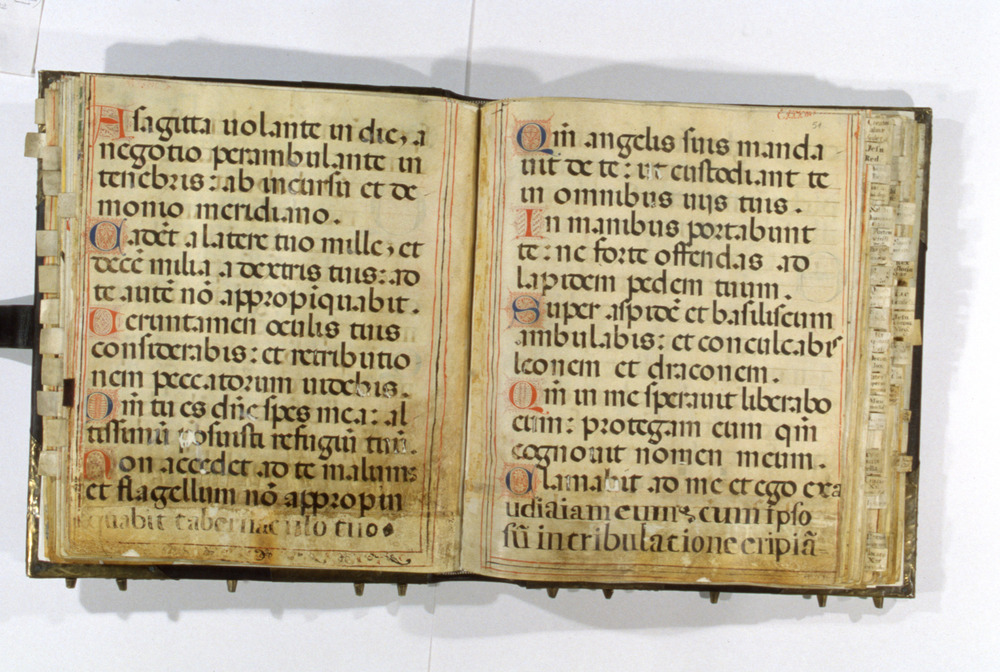 A sagitta uolante in die, a
negotio perambulante in
tenebris: ab incursu et de
monio meridiano.
Cadēt a latere tuo mille, et
decē milia a dextris tuis: ad
te autē nō appropīquabit.
Ueruntamen oculis tuis
considerabis: et retributio
nem peccatorum uidebis.
Qm̄ tu es dn̄e spes mea: al
tissimū posuisti refugiū tuū.
Non accedet ad te malum:
et flagellum nō appropin
quabit tabernaculo tuo
51
Qm̄ angelis suis manda
uit de te: ut custodiant te
in omnibus uijs tuis.
In manibus portabunt
te: ne forte offendas ad
lapidem pedem tuum.
Super aspidē et basiliscum
ambulabis: et conculcabis
leonem et draconem.
Qm̄ in me sperauit liberabo
eum: protegam eum qm̄
cognouit nomen meum.
Clamabit ad me et ego exa
udiaiam eum: cum ipso
sū in tribulatione eripiā